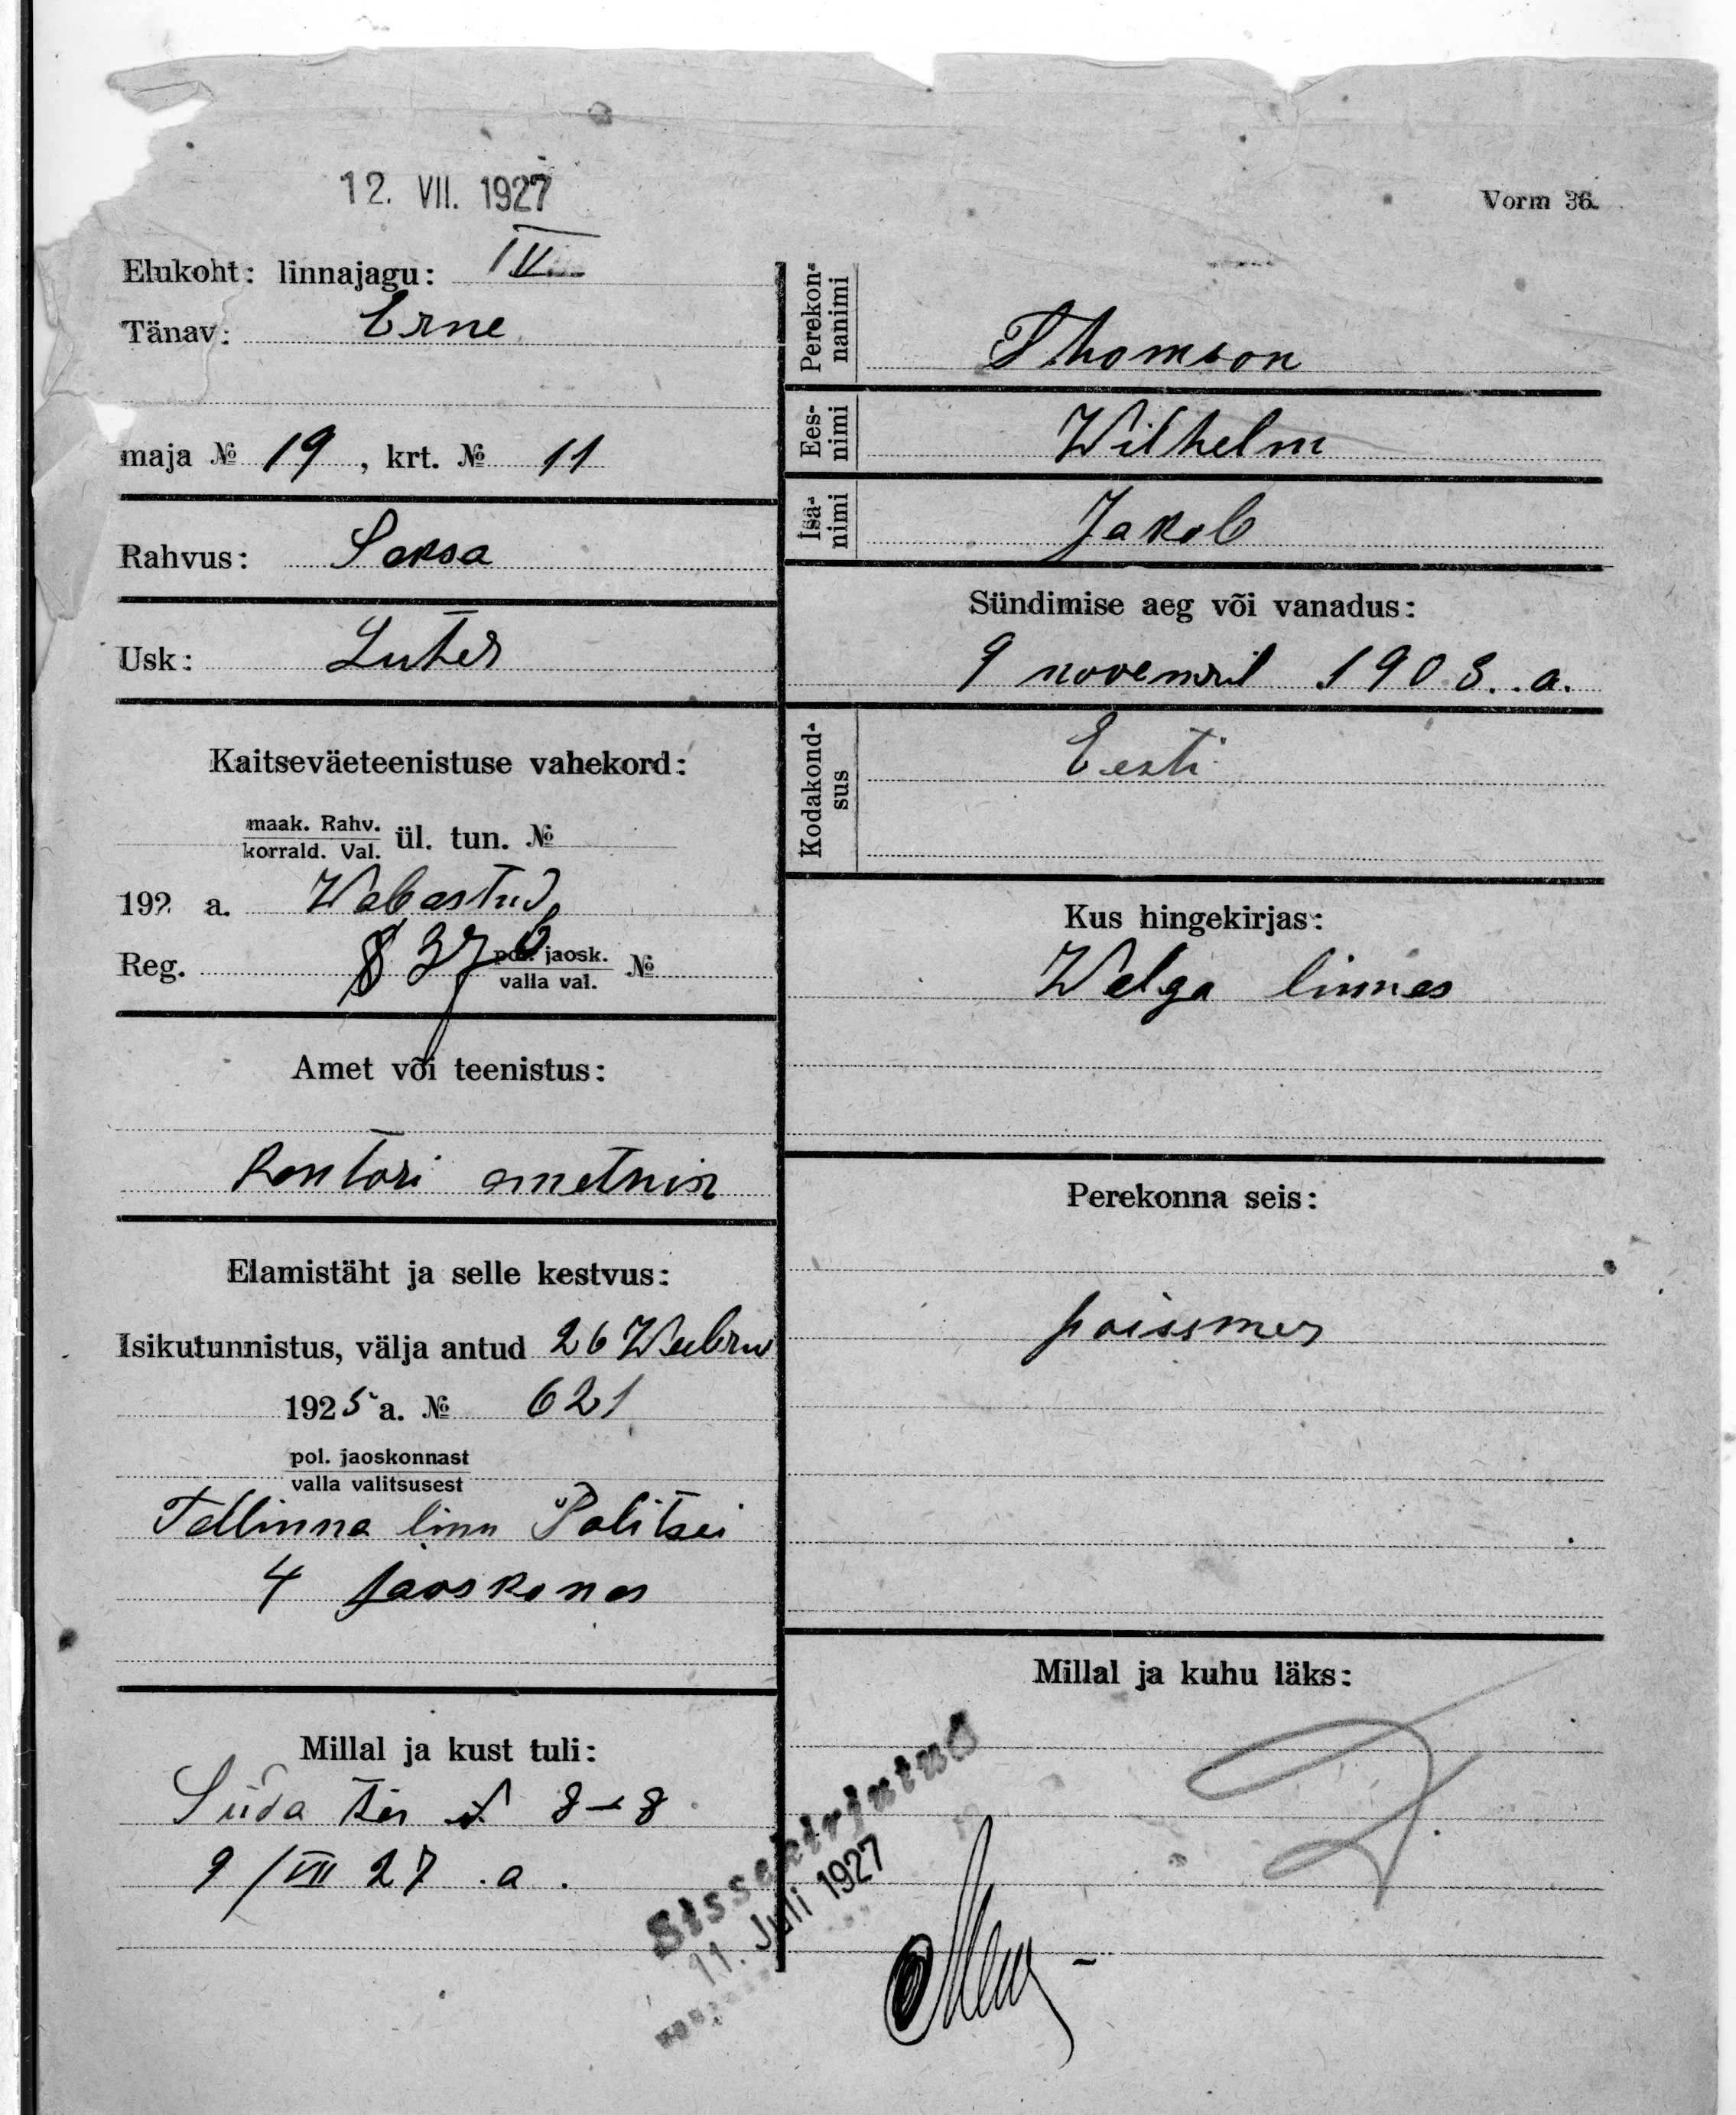 12. VII. 1927
Vorm 36.
Elukoht: linnajagu: IV
Tänav: Erne
maja № 19, krt. № 11
Rahvus: Saksa
Usk: Luther
Kaitseväeteenistuse vahekord:
maak. Rahv.
korrald. Val. ül. tun. №
192 a. Wabastud
Reg. § 37 b pol. jaosk.
valla val. №
Amet või teenistus:
kontori ametnik
Elamistäht ja selle kestvus:
Isikutunnistus, välja antud 26 Weebru
1925 a. № 621
pol. jaoskonnast
valla valitsusest
Tallinna linn Politsei
4 jaoskona
Millal ja kust tuli:
Süda tän 8-8
9/VII 27.a.
Perekonnanimi
Thomson
Eesnimi
Wilhelm
Isanimi
Jakob
Sündimise aeg või vanadus:
9 novembril 1903.a.
Kodakondsus
Eesti
Kus hingekirjas:
Walga linnas
Perekonna seis:
poissmes
Millal ja kuhu läks:
Sissekirjutud
11. Juli 1927